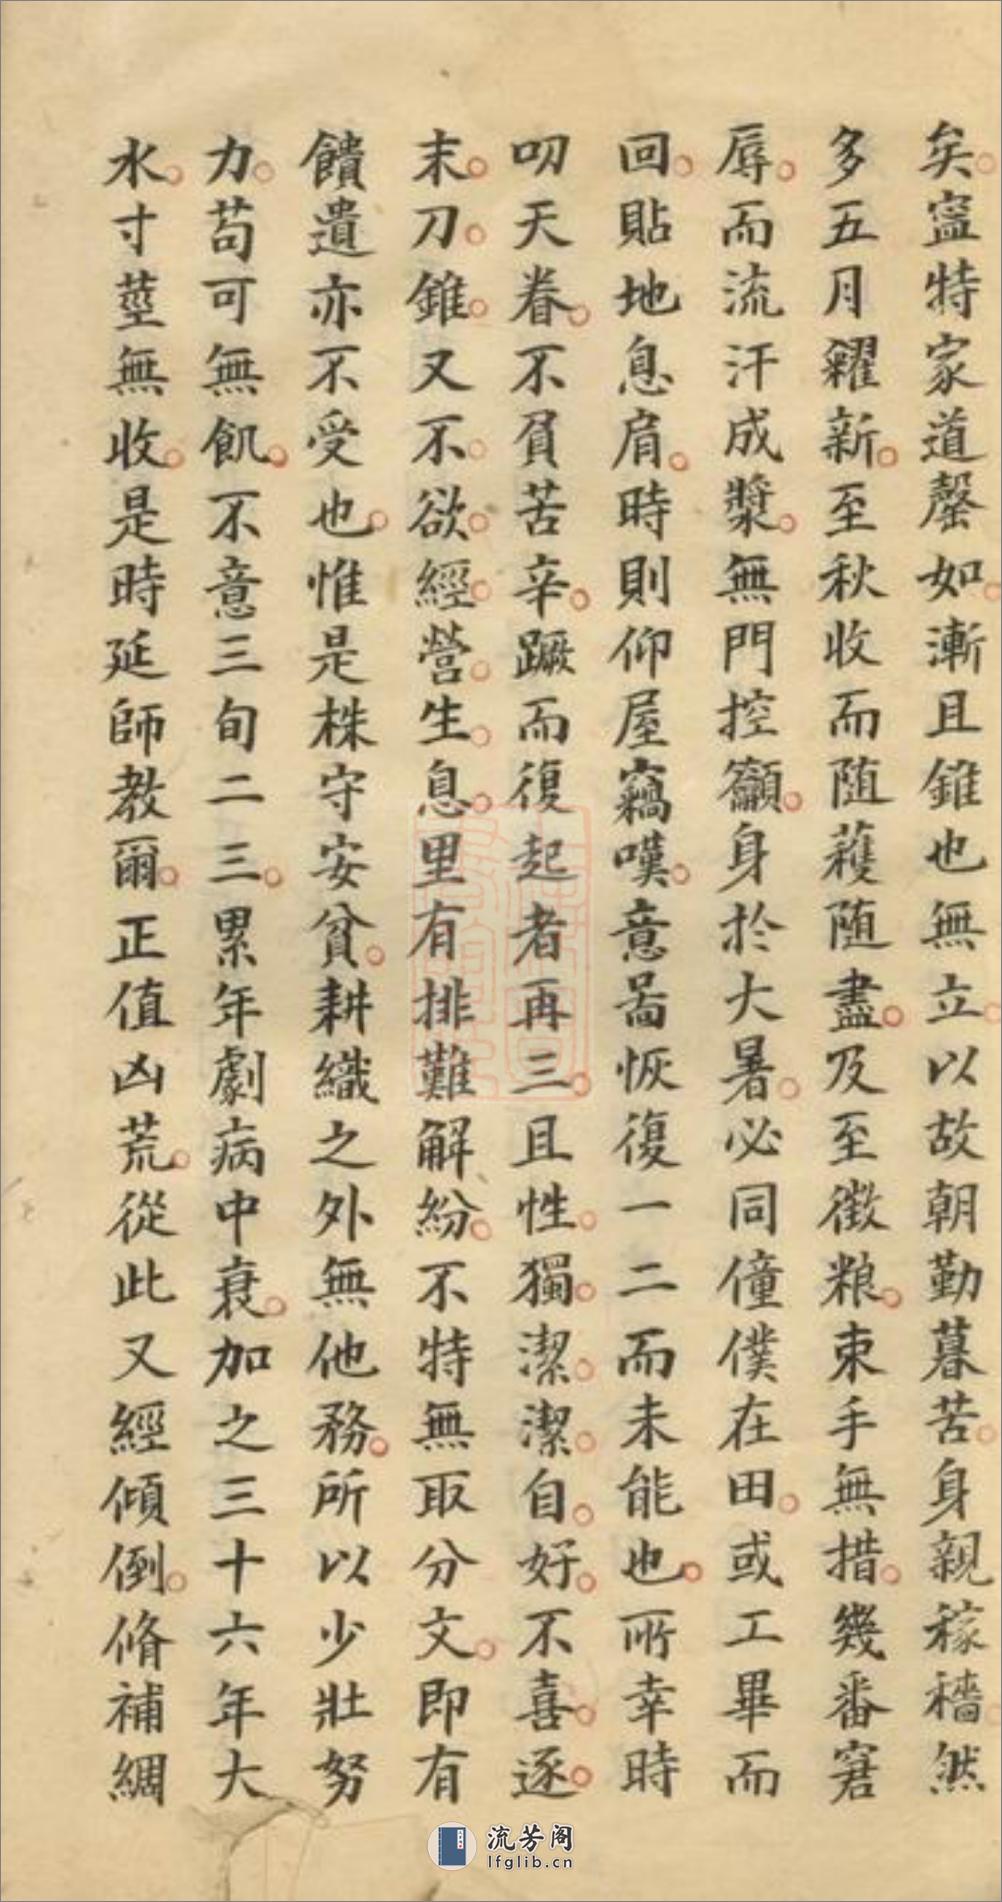 矣寍特家道罄如漸且錐也無立以故朝勤暮苦身親稼穡然
多五月糶新至秋收而随蓷随盡及至徵粮束手無措幾番窘
辱而流汗成漿無門控籲身於大暑必同僮僕在田或工畢而
回貼地息肩時則仰屋竊嘆意啚恢復一二而未能也所幸時
叨天眷不負苦辛蹶而復起者再三且性獨潔潔自好不喜逐
末刀錐又不欲經營生息里有排難解紛不特無取分文即有
饋遺亦不受也惟是株守安貧耕織之外無他務所以少壯努
力苟可無飢不意三旬二三累年劇病中衰加之三十六年大
水寸莖無收是時延師教爾正值凶荒從此又經傾倒脩補綢
流芳阁
lfglib.cn